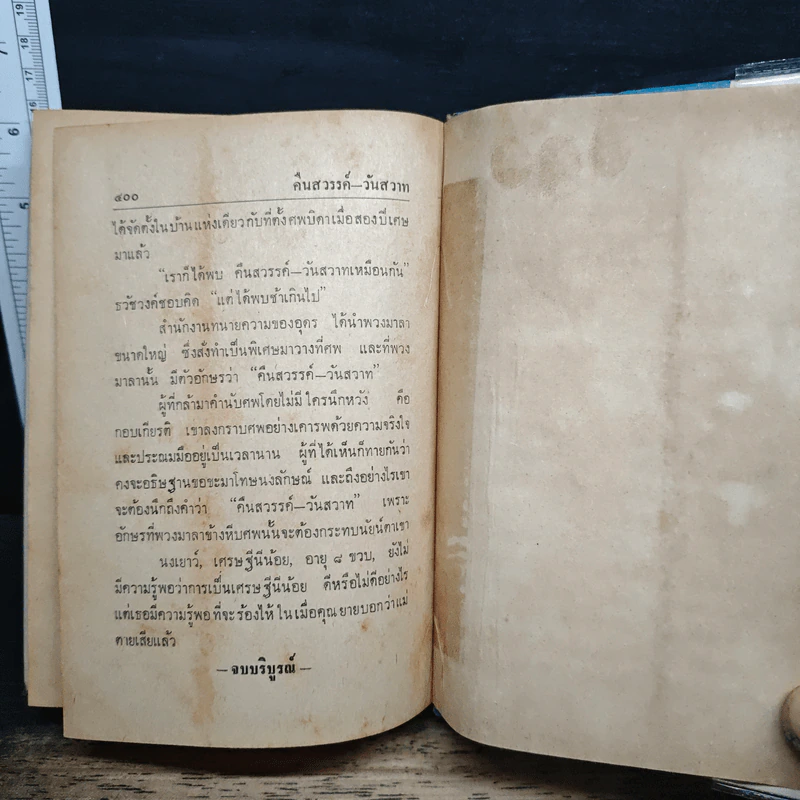 ๔๐๐ คืนสวรรค์—วันสวาท
ได้จัดตั้งในบ้านแห่งเดียวกับที่ตั้งศพบิดาเมื่อสองปีเศษ
มาแล้ว
“เราก็ได้พบ คืนสวรรค์—วันสวาทเหมือนกัน”
ธวัชวงค์ชอบคิด “แต่ได้พบช้าเกินไป”
สำนักงานทนายความของอุดร ได้นำพวงมาลา
ขนาดใหญ่ ซึ่งสั่งทำเป็นพิเศษมาวางที่ศพ และที่พวง
มาลานั้น มีตัวอักษรว่า “คืนสวรรค์—วันสวาท”
ผู้ที่กล้ามาคำนับศพโดยไม่มีใครนึกหวัง คือ
กอบเกียรติ เขาลงกราบศพอย่างเคารพด้วยความจริงใจ
และประณมมืออยู่เป็นเวลานาน ผู้ที่ได้เห็นก็ทายกันว่า
คงจะอธิษฐานขอขะมาโทษนงลักษณ์ และถึงอย่างไรเขา
จะต้องนึกถึงคำว่า “คืนสวรรค์—วันสวาท” เพราะ
อักษรที่พวงมาลาข้างหีบศพนั้นจะต้องกระทบนัยน์ตาเขา
นงเยาว์, เศรษฐีนีน้อย, อายุ ๘ ขวบ, ยังไม่
มีความรู้พอว่าการเป็นเศรษฐีนีน้อย ดีหรือไม่ดีอย่างไร
แต่เธอมีความรู้พอที่จะร้องไห้ ในเมื่อคุณยายบอกว่าแม่
ตายเสียแล้ว
—จบบริบูรณ์—
7
6
5
19
18
17
16